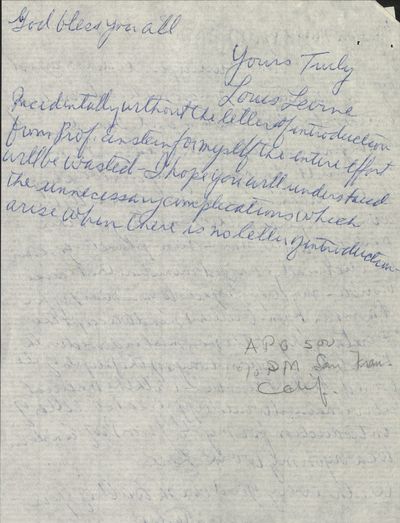 God bless you all
Yours Truly
Louis Levine
Incidentally without the letter of introduction
from Prof. Einstein for myself the entire effort
will be wasted - I hope you will understand
the unnecessary complications which
arise when there is no letter of introduction
APO 500
c/o PM San Fran.
Calif.